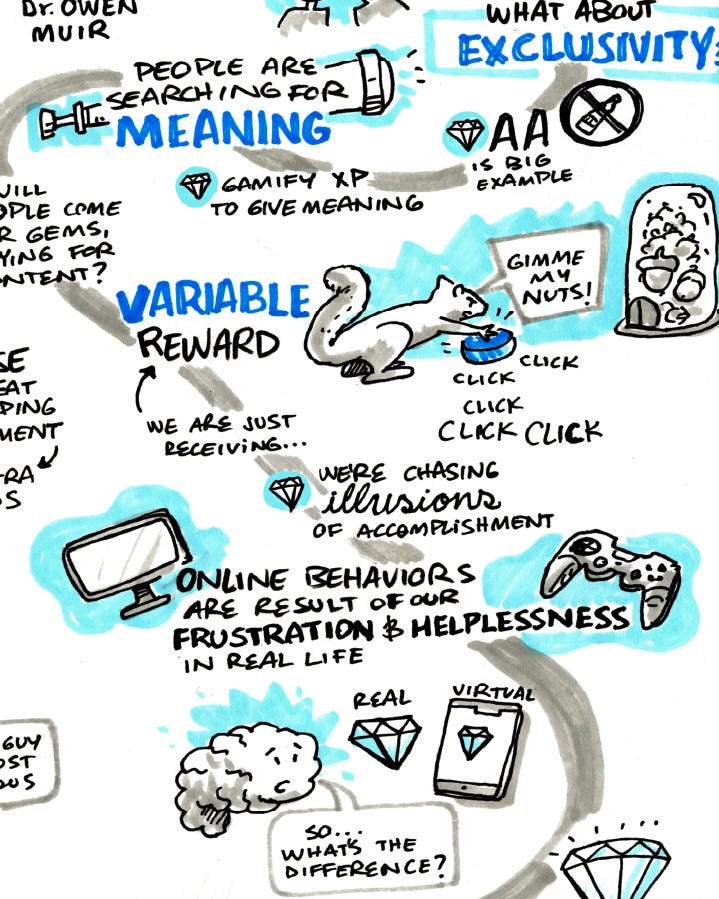 Dr. OWEN
MUIR
WHAT ABOUT
EXCLUSIVITY?
PEOPLE ARE
SEARCHING FOR
MEANING
AA
IS BIG
EXAMPLE
GAMIFY XP
TO GIVE MEANING
COME
GEMS,
FOR
VARIABLE
REWARD
GIMME
MY
NUTS!
CLICK
CLICK
CLICK
CLICK CLICK
WE ARE JUST
RECEIVING...
WE'RE CHASING
illusions
OF ACCOMPLISHMENT
ONLINE BEHAVIORS
ARE RESULT OF OUR
FRUSTRATION & HELPLESSNESS
IN REAL LIFE
GUY
REAL
VIRTUAL
SO...
WHAT'S THE
DIFFERENCE?